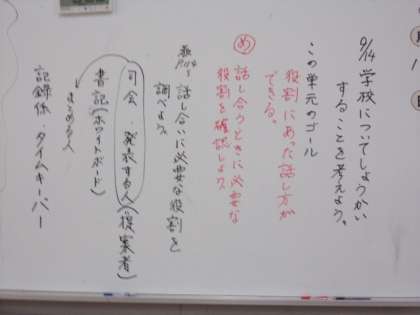 9/14 学校についてしょうかい
することを考えよう。
この単元のゴール
役割にあった話し方が
できる。
め 話し合うときに必要な
役割を確認しよう。
話し合いに必要な役割を
調べよう。
司会・発表する人(提案者)
書記(ホワイトボード)
まとめる人
記録係・タイムキーパー